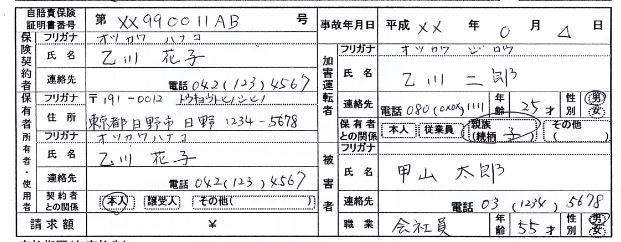 自賠責保険証明書番号 第 XX990011AB 号 事故年月日 平成 XX 年 0 月 △ 日
保険契約者 フリガナ オツカワ ハナコ
氏名 乙川 花子
連絡先 電話 042(123)4567
保有者 所有者・使用者 フリガナ 〒191-0012 トウキョウトヒノシヒノ
住所 東京都日野市日野 1234-5678
フリガナ オツカワ ハナコ
氏名 乙川 花子
連絡先 電話 042(123)4567
契約者との関係 本人 譲受人 その他( )
請求額 ¥
加害運転者 フリガナ オツカワ ジロウ
氏名 乙川 二郎
連絡先 電話 080(0X0X)1111 年齢 25才 性別 男・女
保有者との関係 本人 従業員 親族(続柄 子) その他( )
被害者 フリガナ
氏名 甲山 太郎
連絡先 電話 03(1234)5678
職業 会社員 年齢 55才 性別 男・女